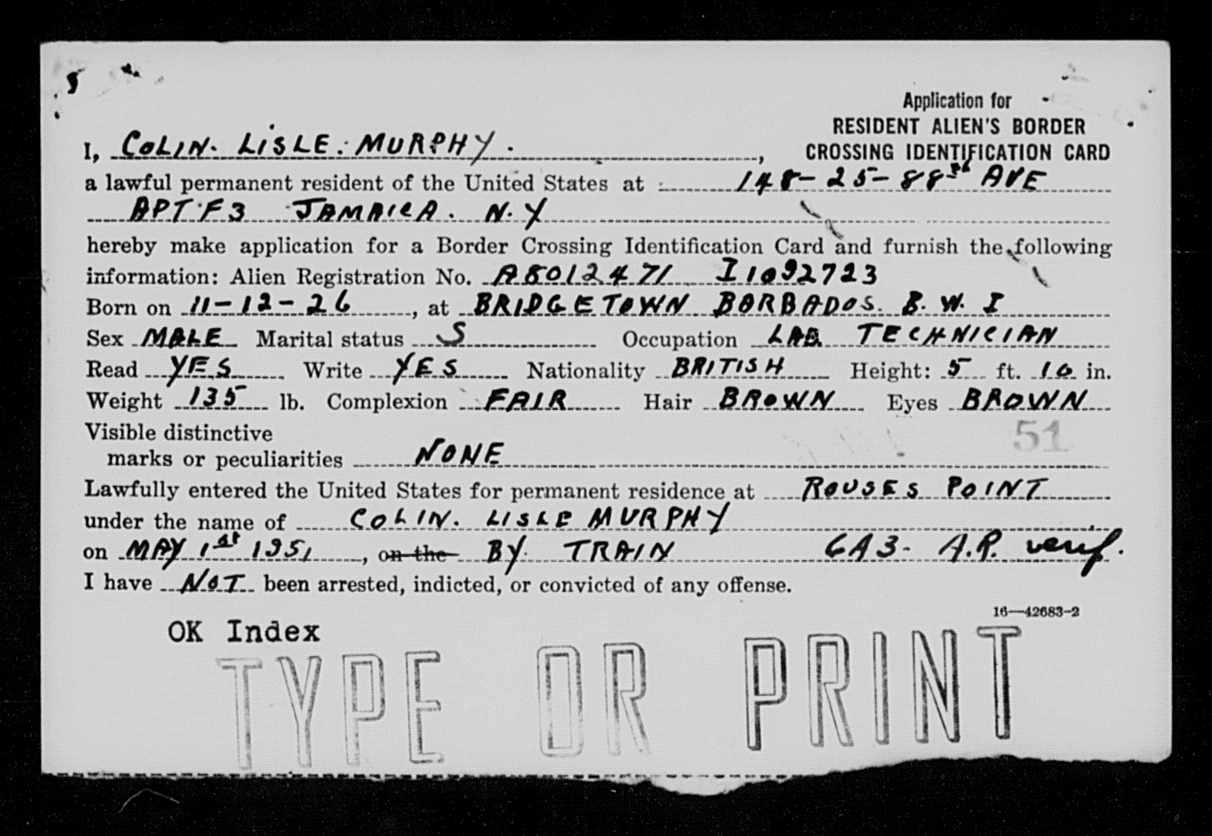 Application for
RESIDENT ALIEN'S BORDER
CROSSING IDENTIFICATION CARD
I, COLIN. LISLE. MURPHY.,
a lawful permanent resident of the United States at 148-25-88th AVE
APT F3 JAMAICA. N.Y
hereby make application for a Border Crossing Identification Card and furnish the following
information: Alien Registration No. A8012471 I1092723
Born on 11-12-26, at BRIDGETOWN BARBADOS. B.W.I
Sex MALE Marital status S Occupation LAB TECHNICIAN
Read YES Write YES Nationality BRITISH Height: 5 ft. 10 in.
Weight 135 lb. Complexion FAIR Hair BROWN Eyes BROWN
51
Visible distinctive
marks or peculiarities NONE
Lawfully entered the United States for permanent residence at ROUSES POINT
under the name of COLIN. LISLE MURPHY
on MAY 1st 1951, on the BY TRAIN 6A3- A.R. verif.
I have NOT been arrested, indicted, or convicted of any offense.
16—42683-2
OK Index
TYPE OR PRINT